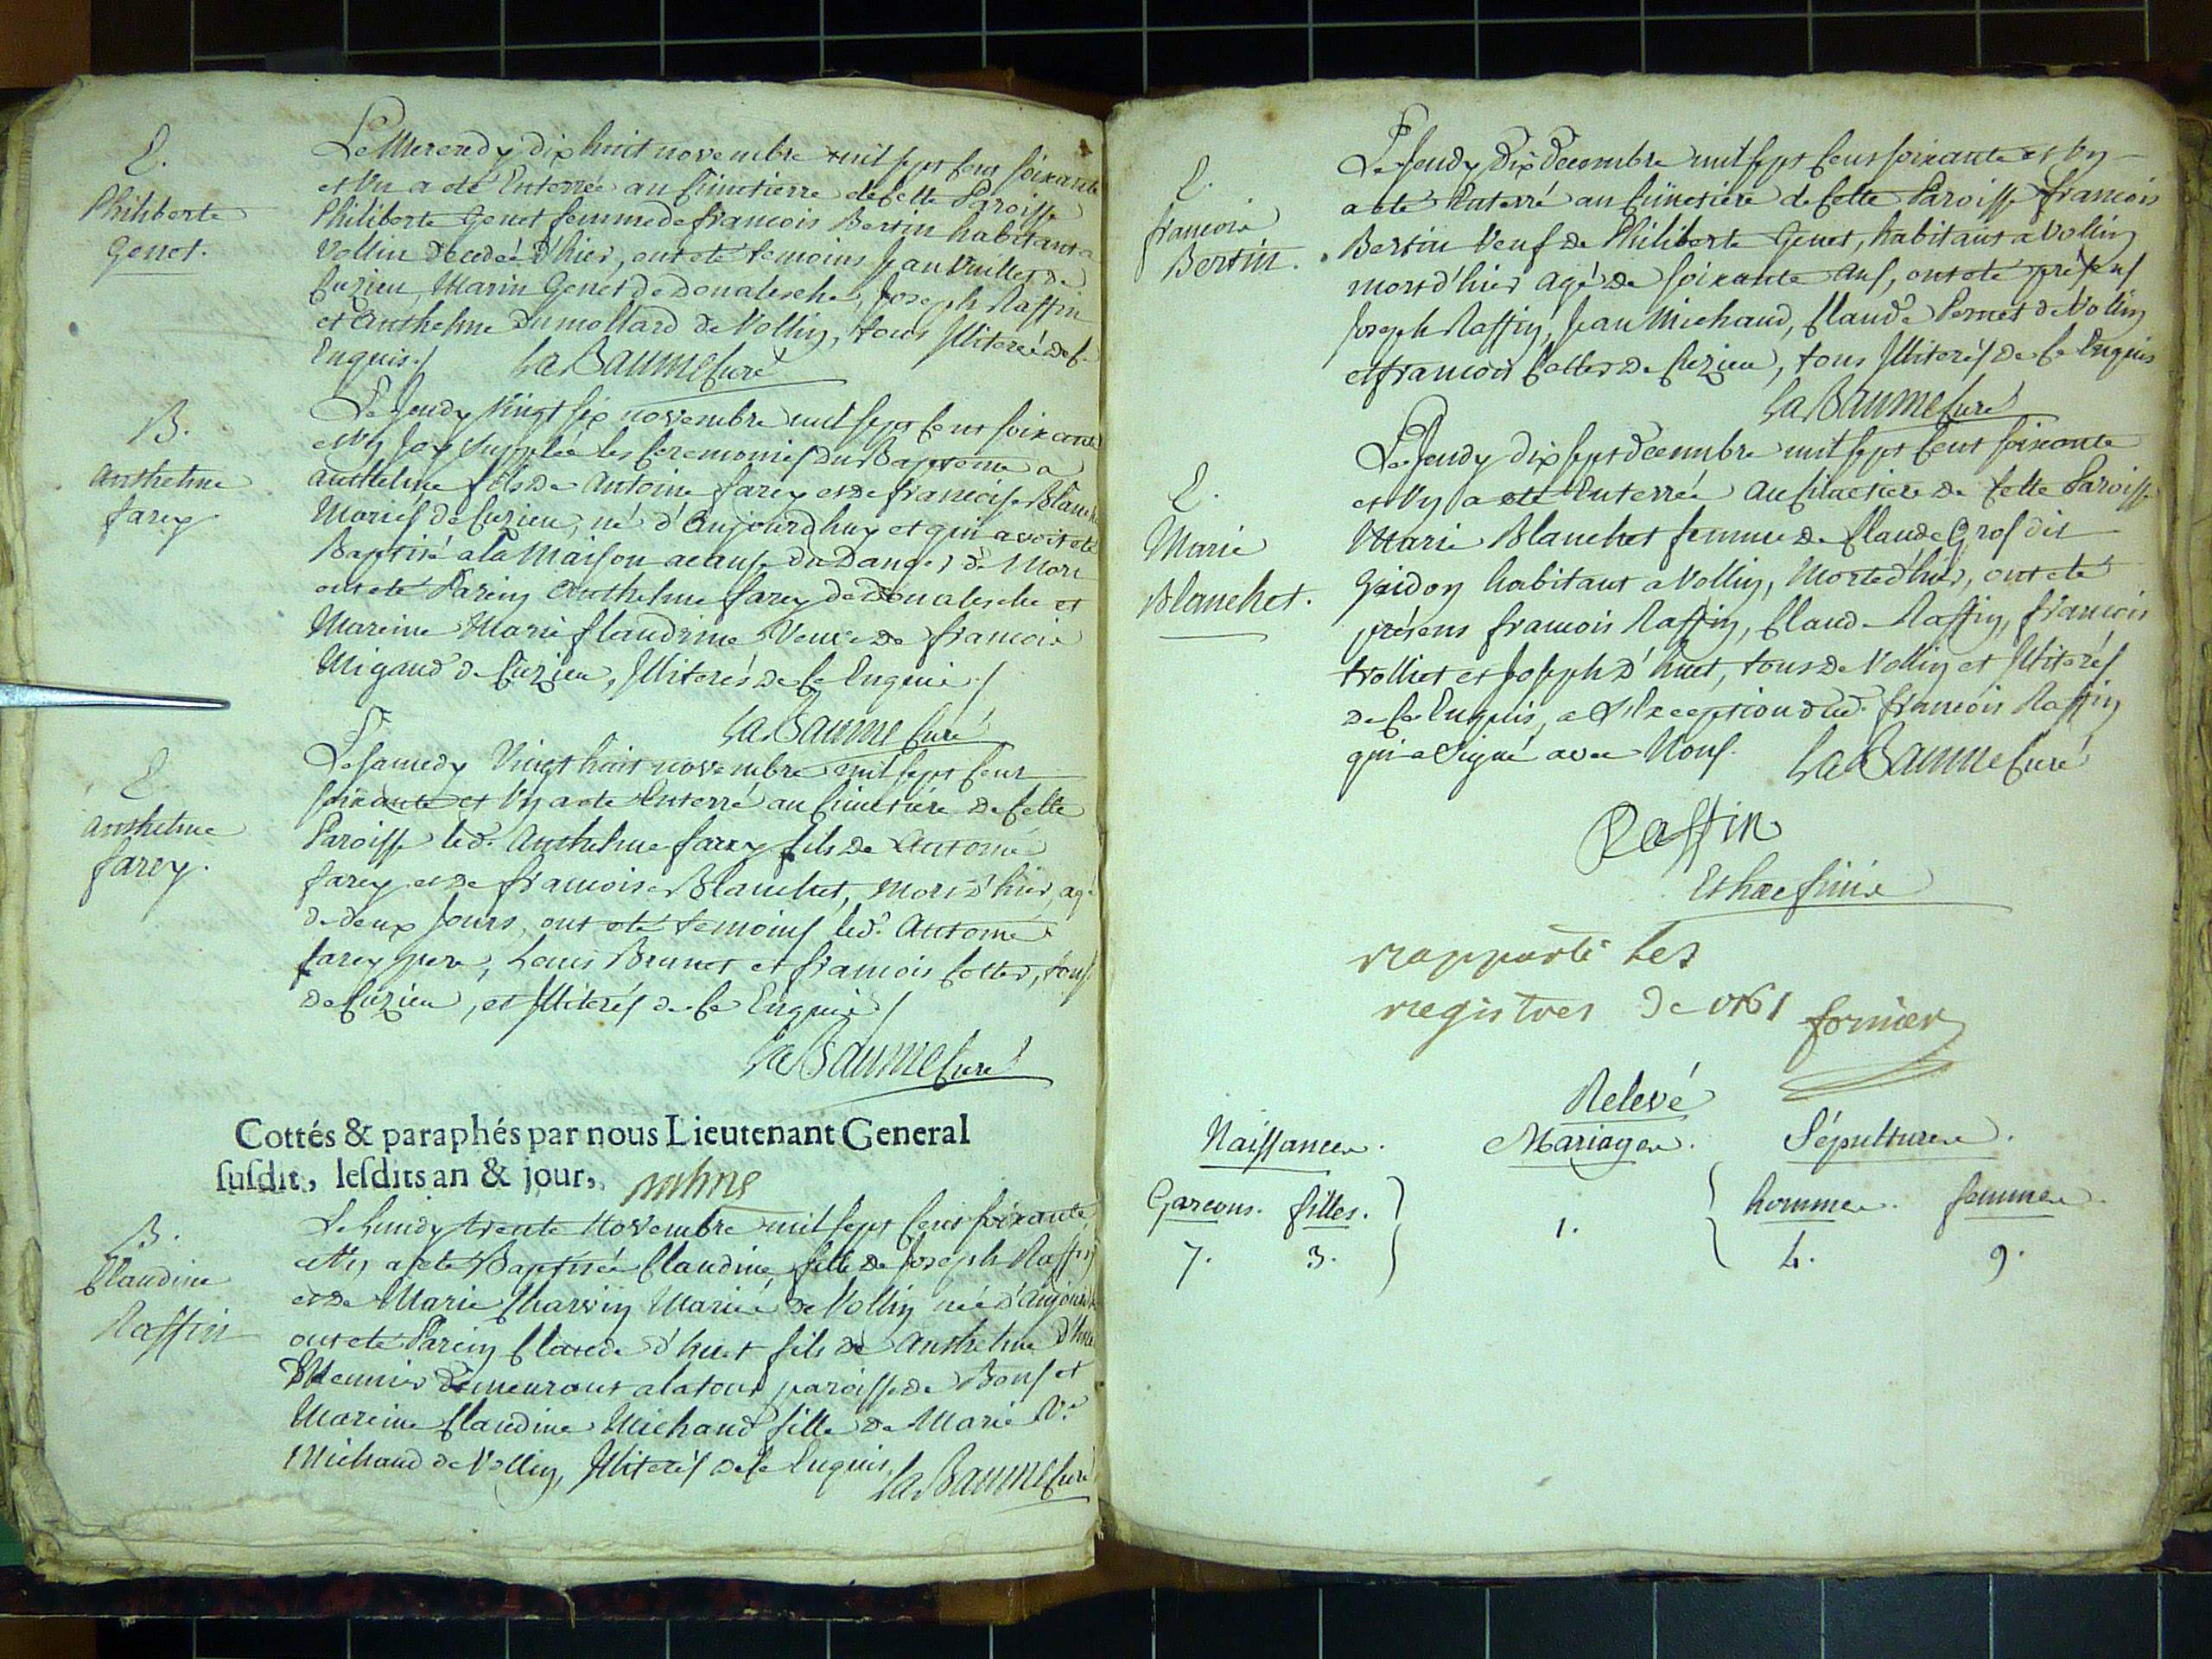 E.
Philiberte
Genet.
Le Mercredy dix huit novembre mil sept cent soixante
et un a été Enterrée au Cimetierre de cette Paroisse
Philiberte Genet femme de francois Bertin habitant a
Vollin decedeé d'hier, ont eté temoins Jean Vuillet de
Cuzieu, Marin Genet de Donalesche, Joseph Raffin
et Anthelme Dumollard de Vollin, tous Illiterés de ce
Enquis./ La Baume Curé
B.
anthelme
farey
Le Jeudy Vingt six novembre mil sept cent soixante
et Un J'ay Supplée les Ceremonies du Baptème a
anthelme fils de Antoine farey et de francoise Blanchet
Mariés de Cuzieu, né d'Aujourdhuy et qui avoit eté
Baptisé a la Maison a cause du Danger de Mort
ont eté Parein Anthelme farey de Donalesche et
Mareine Marie flandrine Veuve de francois
Migaud de Cuzieu, Illiterés de ce Enquis./
La Baume Curé
E.
anthelme
farey.
Le Samedy Vingt huit novembre mil sept cent
soixante et Un a eté Enterré au Cimetière de cette
Paroisse led. Anthelme farey fils de Antoine
farey et de francoise Blanchet, mort d'hier, agé
de deux Jours, ont eté temoins led. Antoine
farey pere, Louis Brunet et francois Cotter, tous
de Cuzieu, et Illiterés de ce Enquis./
La Baume Curé
Cottés & paraphés par nous Lieutenant General
susdit, lesdits an & jour,
B.
Claudine
Raffin
Le Lundy trente Novembre mil sept cent soixante
et Un a eté Baptisée Claudine, fille de Joseph Raffin
et de Marie Charvin Mariés de Vollin neé d'Aujourd'huy
ont eté Parein Claude d'huet fils de Anthelme d'huet
Meunier demeurant a la tour paroisse de Bons et
Mareine Claudine Michaud fille de Marie Ve
Michaud de Vollin, Illiterés de ce Enquis,
La Baume Curé
E.
francois
Bertin.
Le Jeudy Dix Decembre mil sept cent soixante et Un
a eté Enterré au Cimetière de cette Paroisse francois
Bertin Veuf de Philiberte Genet, habitant a Vollin
mort d'hier agé de soixante ans, ont eté présens
Joseph Raffin, Jean Michaud, Claude Pernet de Vollin
et francois Cotter de Cuzieu, tous Illiterés de ce Enquis
La Baume Curé
E.
Marie
Blanchet.
Le Jeudy dix sept decembre mil sept cent soixante
et Un a eté Enterrée au Cimetière de Cette Paroisse
Marie Blanchet femme de Claude Gros dit
Guidon habitant a Vollin, Morte d'hier, ont eté
présens francois Raffin, Claude Raffin, francois
trolliet et Joseph d'huet, tous de Vollin et Illiterés
de ce Enquis, a l'Exception dud. francois Raffin
qui a Signé avec Nous. La Baume Curé
Raffin
Et hæc finis
rapporté les
registres de 1761
Relevé
Naissances. Mariages. Sépultures.
Garcons. filles. hommes. femmes.
7. 3. 1. 4. 9.